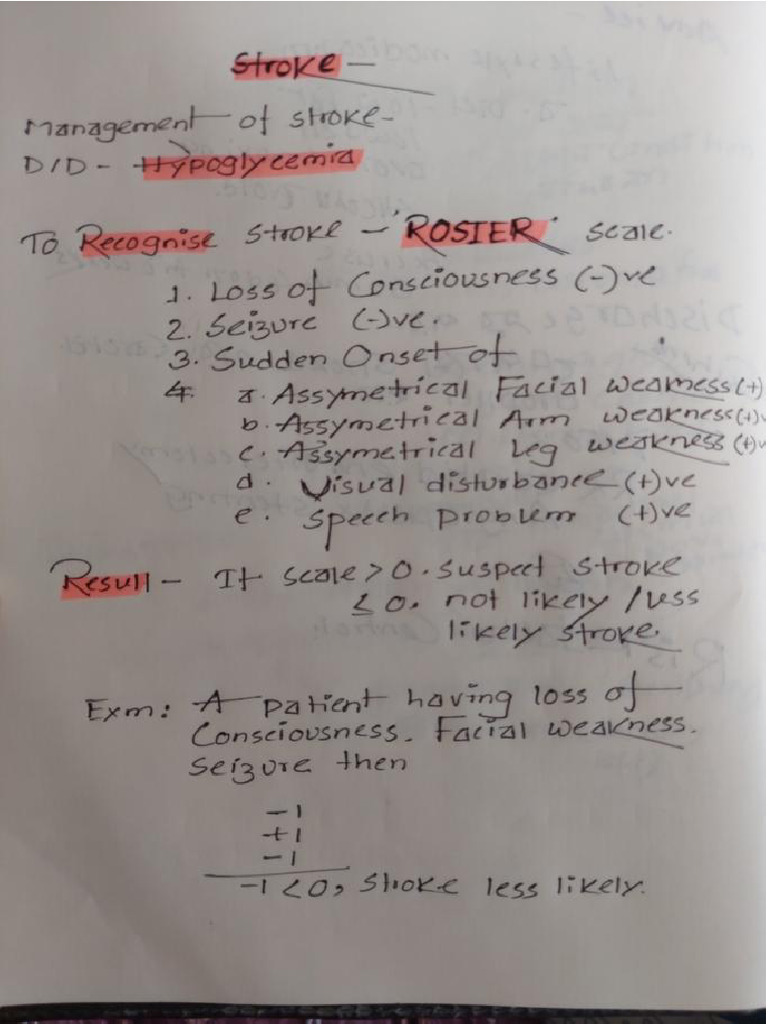 Stroke -
Management of stroke -
D/D - Hypoglycemia
To Recognise stroke - 'ROSIER' scale.
1. Loss of Consciousness (-)ve
2. Seizure (-)ve.
3. Sudden Onset of
4. a. Assymetrical Facial weakness (+)
b. Assymetrical Arm weakness (+)v
c. Assymetrical Leg weakness (+)v
d. Visual disturbance (+)ve
e. Speech problem (+)ve
Result - If scale > 0. suspect stroke
≤ 0. not likely / less
likely stroke.
Exm: A patient having loss of
Consciousness. Facial weakness.
Seizure then
-1
+1
-1
-1 < 0, Stroke less likely.